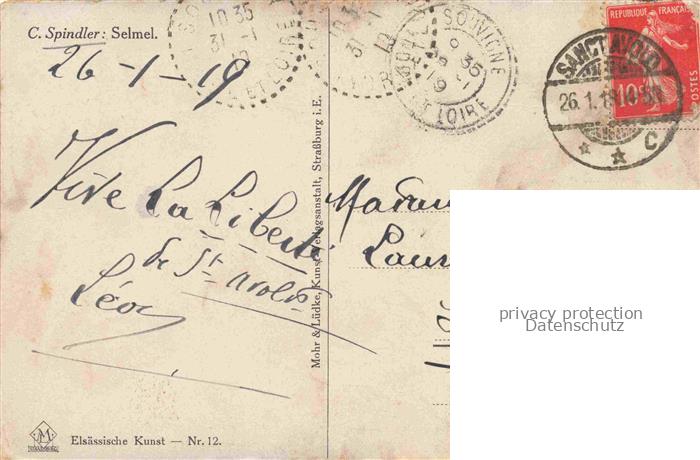 C. Spindler: Selmel.
26-1-19
Vive La Liberté
de St avold
Léon
Mohr & Lüdke, Kunst-Verlagsanstalt, Straßburg i.E.
Elsässische Kunst — Nr. 12.
10 35
31 -1
ET LOIRE
SOUVIGNÉ
ET LOIRE
SANCT AVOLD
26.1.19 10
C
REPUBLIQUE FRANÇAISE
10
POSTES
Madame
privacy protection
Datenschutz